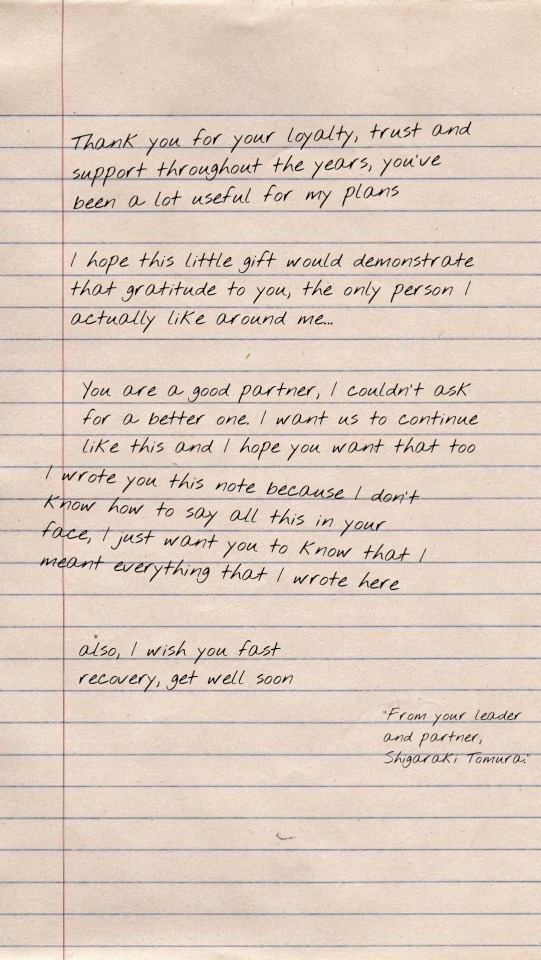 Thank you for your loyalty, trust and
support throughout the years, you've
been a lot useful for my plans
I hope this little gift would demonstrate
that gratitude to you, the only person I
actually like around me...
You are a good partner, I couldn't ask
for a better one. I want us to continue
like this and I hope you want that too
I wrote you this note because I don't
know how to say all this in your
face, I just want you to know that I
meant everything that I wrote here
also, I wish you fast
recovery, get well soon
"From your leader
and partner,
Shigaraki Tomura."